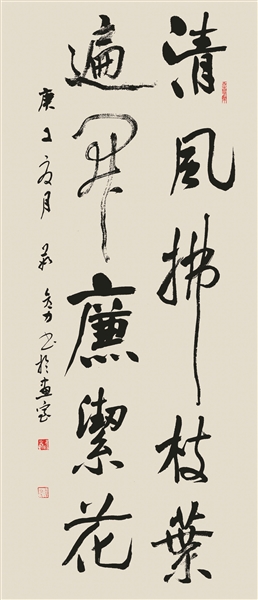 清風拂枝葉
遍開廉潔花
庚子夏月 书於画室